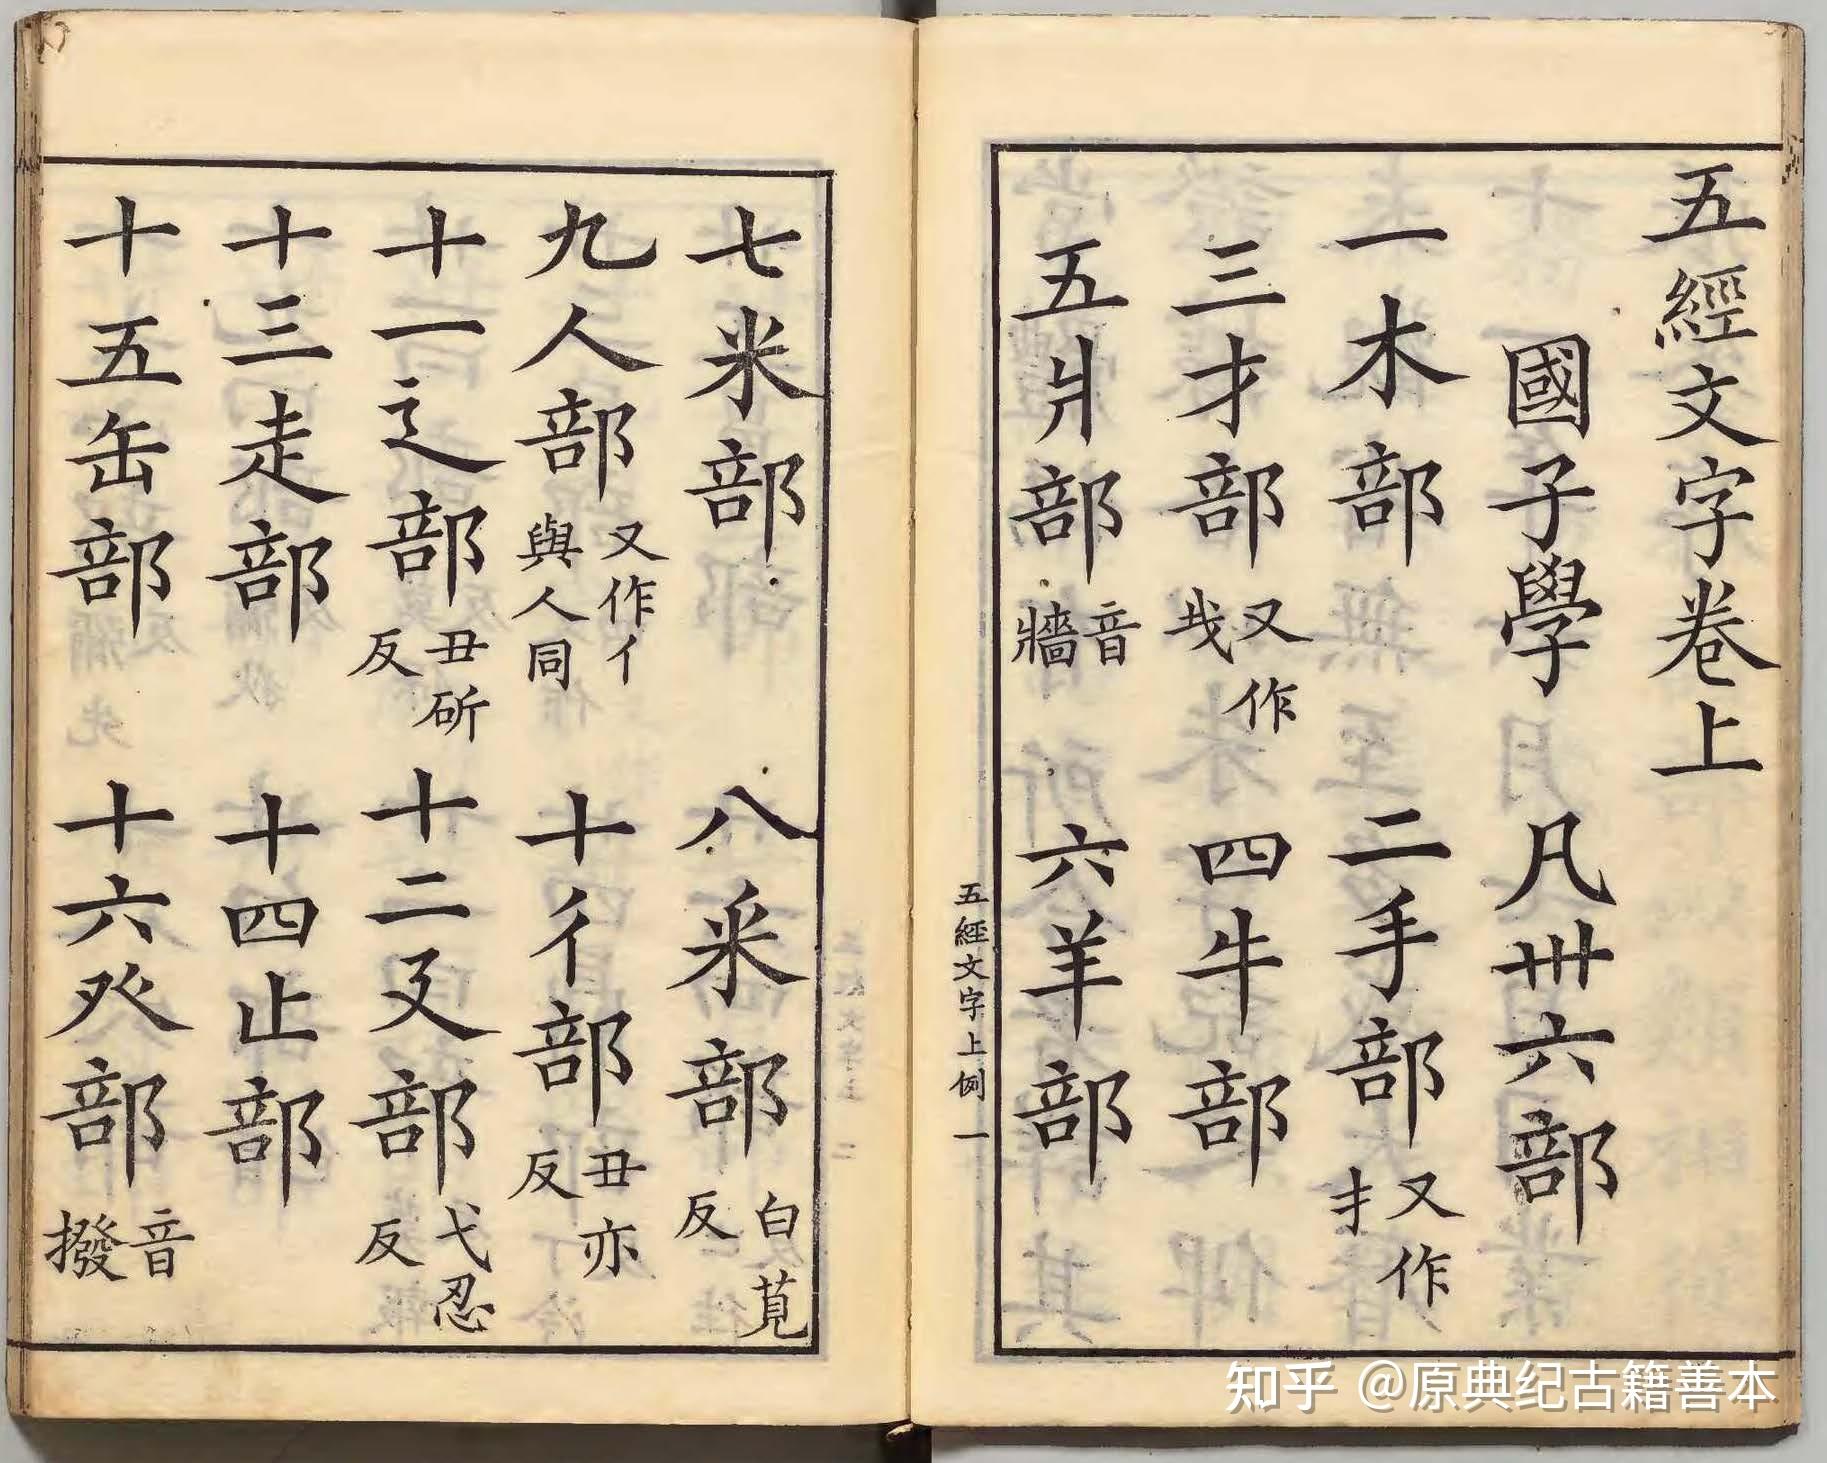 五經文字卷上
國子學 凡卅六部
一木部 二手部 又作扌
三才部 又作𢦏 四牛部
五爿部 音牆 六羊部
五經文字上例 一
七米部 八釆部 白莧反
九人部 又作亻與人同 十彳部 丑亦反
十一辶部 丑斫反 十二廴部 弋忍反
十三走部 十四止部
十五缶部 十六癶部 音撥
知乎 @原典纪古籍善本